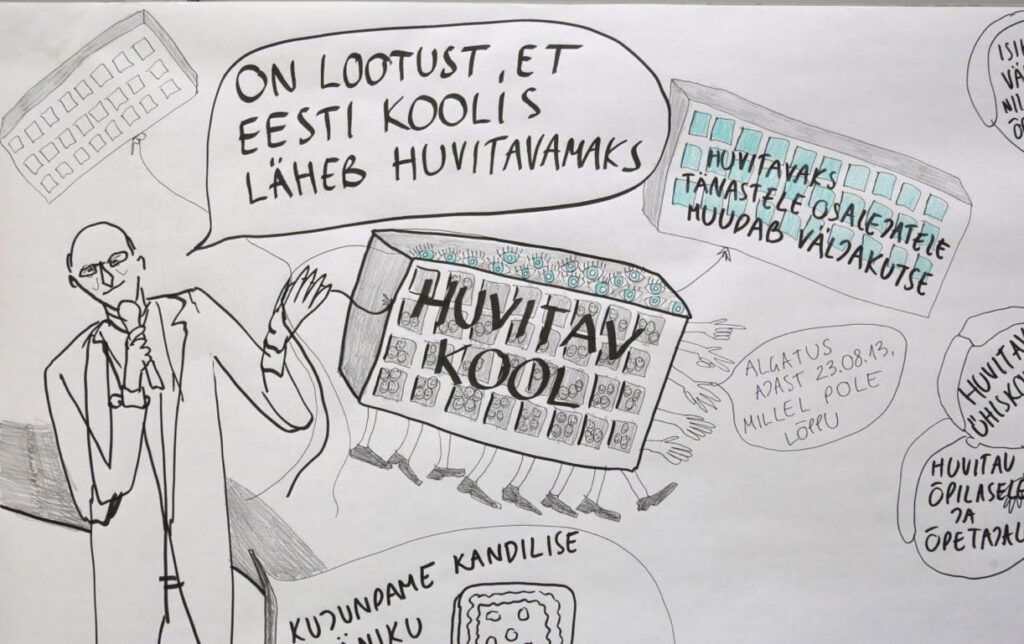 ON LOOTUST, ET
EESTI KOOLIS
LÄHEB HUVITAVAMAKS
HUVITAVAKS
TÄNASTELE OSALEJATELE
MUUDAB VÄLJAKUTSE
HUVITAV
KOOL
ALGATUS
AJAST 23.08.13,
MILLEL POLE
LÕPPU
HUVITAV
ÜHISKO
HUVITAV
ÕPILASELE
JA
ÕPETAJAL
KUJUNDAME KANDILISE